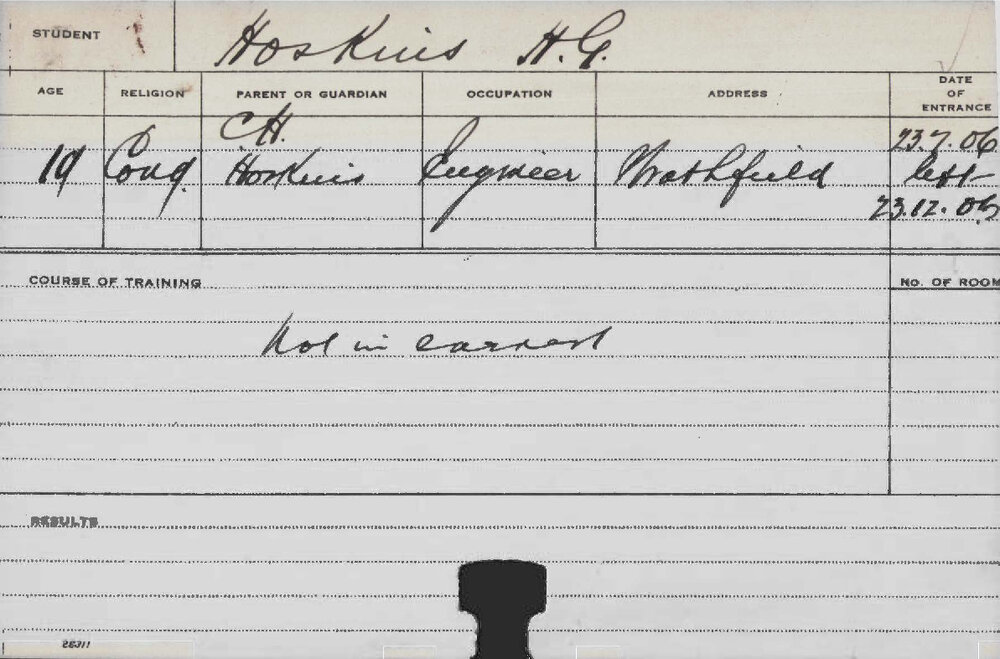 STUDENT Hoskins H.G.
AGE RELIGION PARENT OR GUARDIAN OCCUPATION ADDRESS DATE OF ENTRANCE
19 Cong. C.H. Hoskins Engineer Strathfield 23.7.06
left
23.12.06
COURSE OF TRAINING No. OF ROOM
Not in earnest
RESULTS